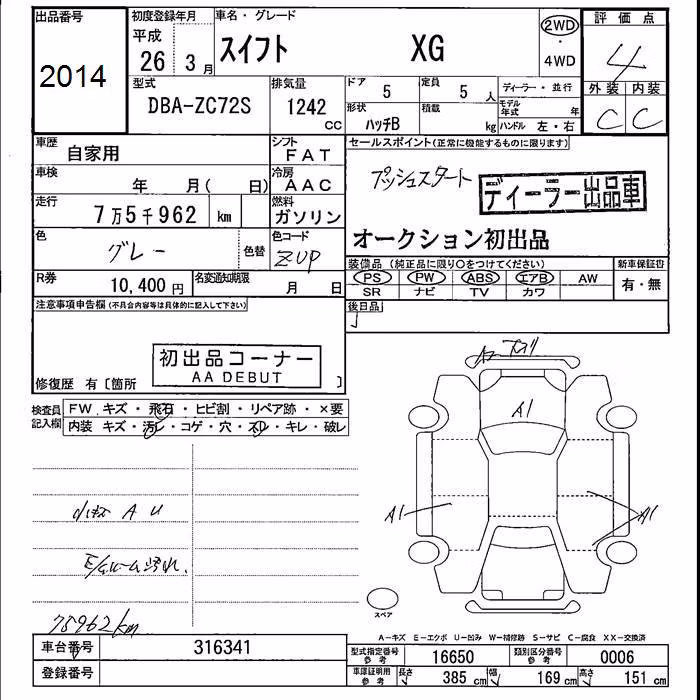 出品番号 初度登録年月 車名・グレード 2WD 評価点
2014 平成 26年 3月 スイフト XG 4WD 4
型式 排気量 ドア 定員 ディーラー・並行 外装 内装
DBA-ZC72S 1242 CC 5 5人 モデル年式 年 C C
形状 積載
ハッチB kg ハンドル 左・右
車歴 自家用 シフト FAT セールスポイント(正常に機能するものに限ります)
車検 年 月( 日) 冷房 AAC プッシュスタート ディーラー出品車
走行 7万5千962 km 燃料 ガソリン
色 グレー 色替 色コード ZUP オークション初出品
R券 10,400円 名変通知期限 月 日 装備品(純正品に限り○をつけてください) 新車保証書
PS PW ABS エアB AW 有・無
SR ナビ TV カワ
注意事項申告欄(不具合内容等は具体的に記入して下さい) 後日品
初出品コーナー
AA DEBUT
修復歴 有〔箇所 〕
検査員記入欄 FW キズ・飛石・ヒビ割・リペア跡・×要
内装 キズ・汚レ・コゲ・穴・スレ・キレ・破レ
A1
A1 A1
小キズ A U
E/ルーム汚れ.
75962km
スペア
A-キズ E-エクボ U-凹み W-補修跡 S-サビ C-腐食 XX-交換済
車台番号 316341 型式指定番号 参考 16650 類別区分番号 参考 0006
登録番号 車庫証明用 参考 長さ 385cm 幅 169cm 高さ 151cm